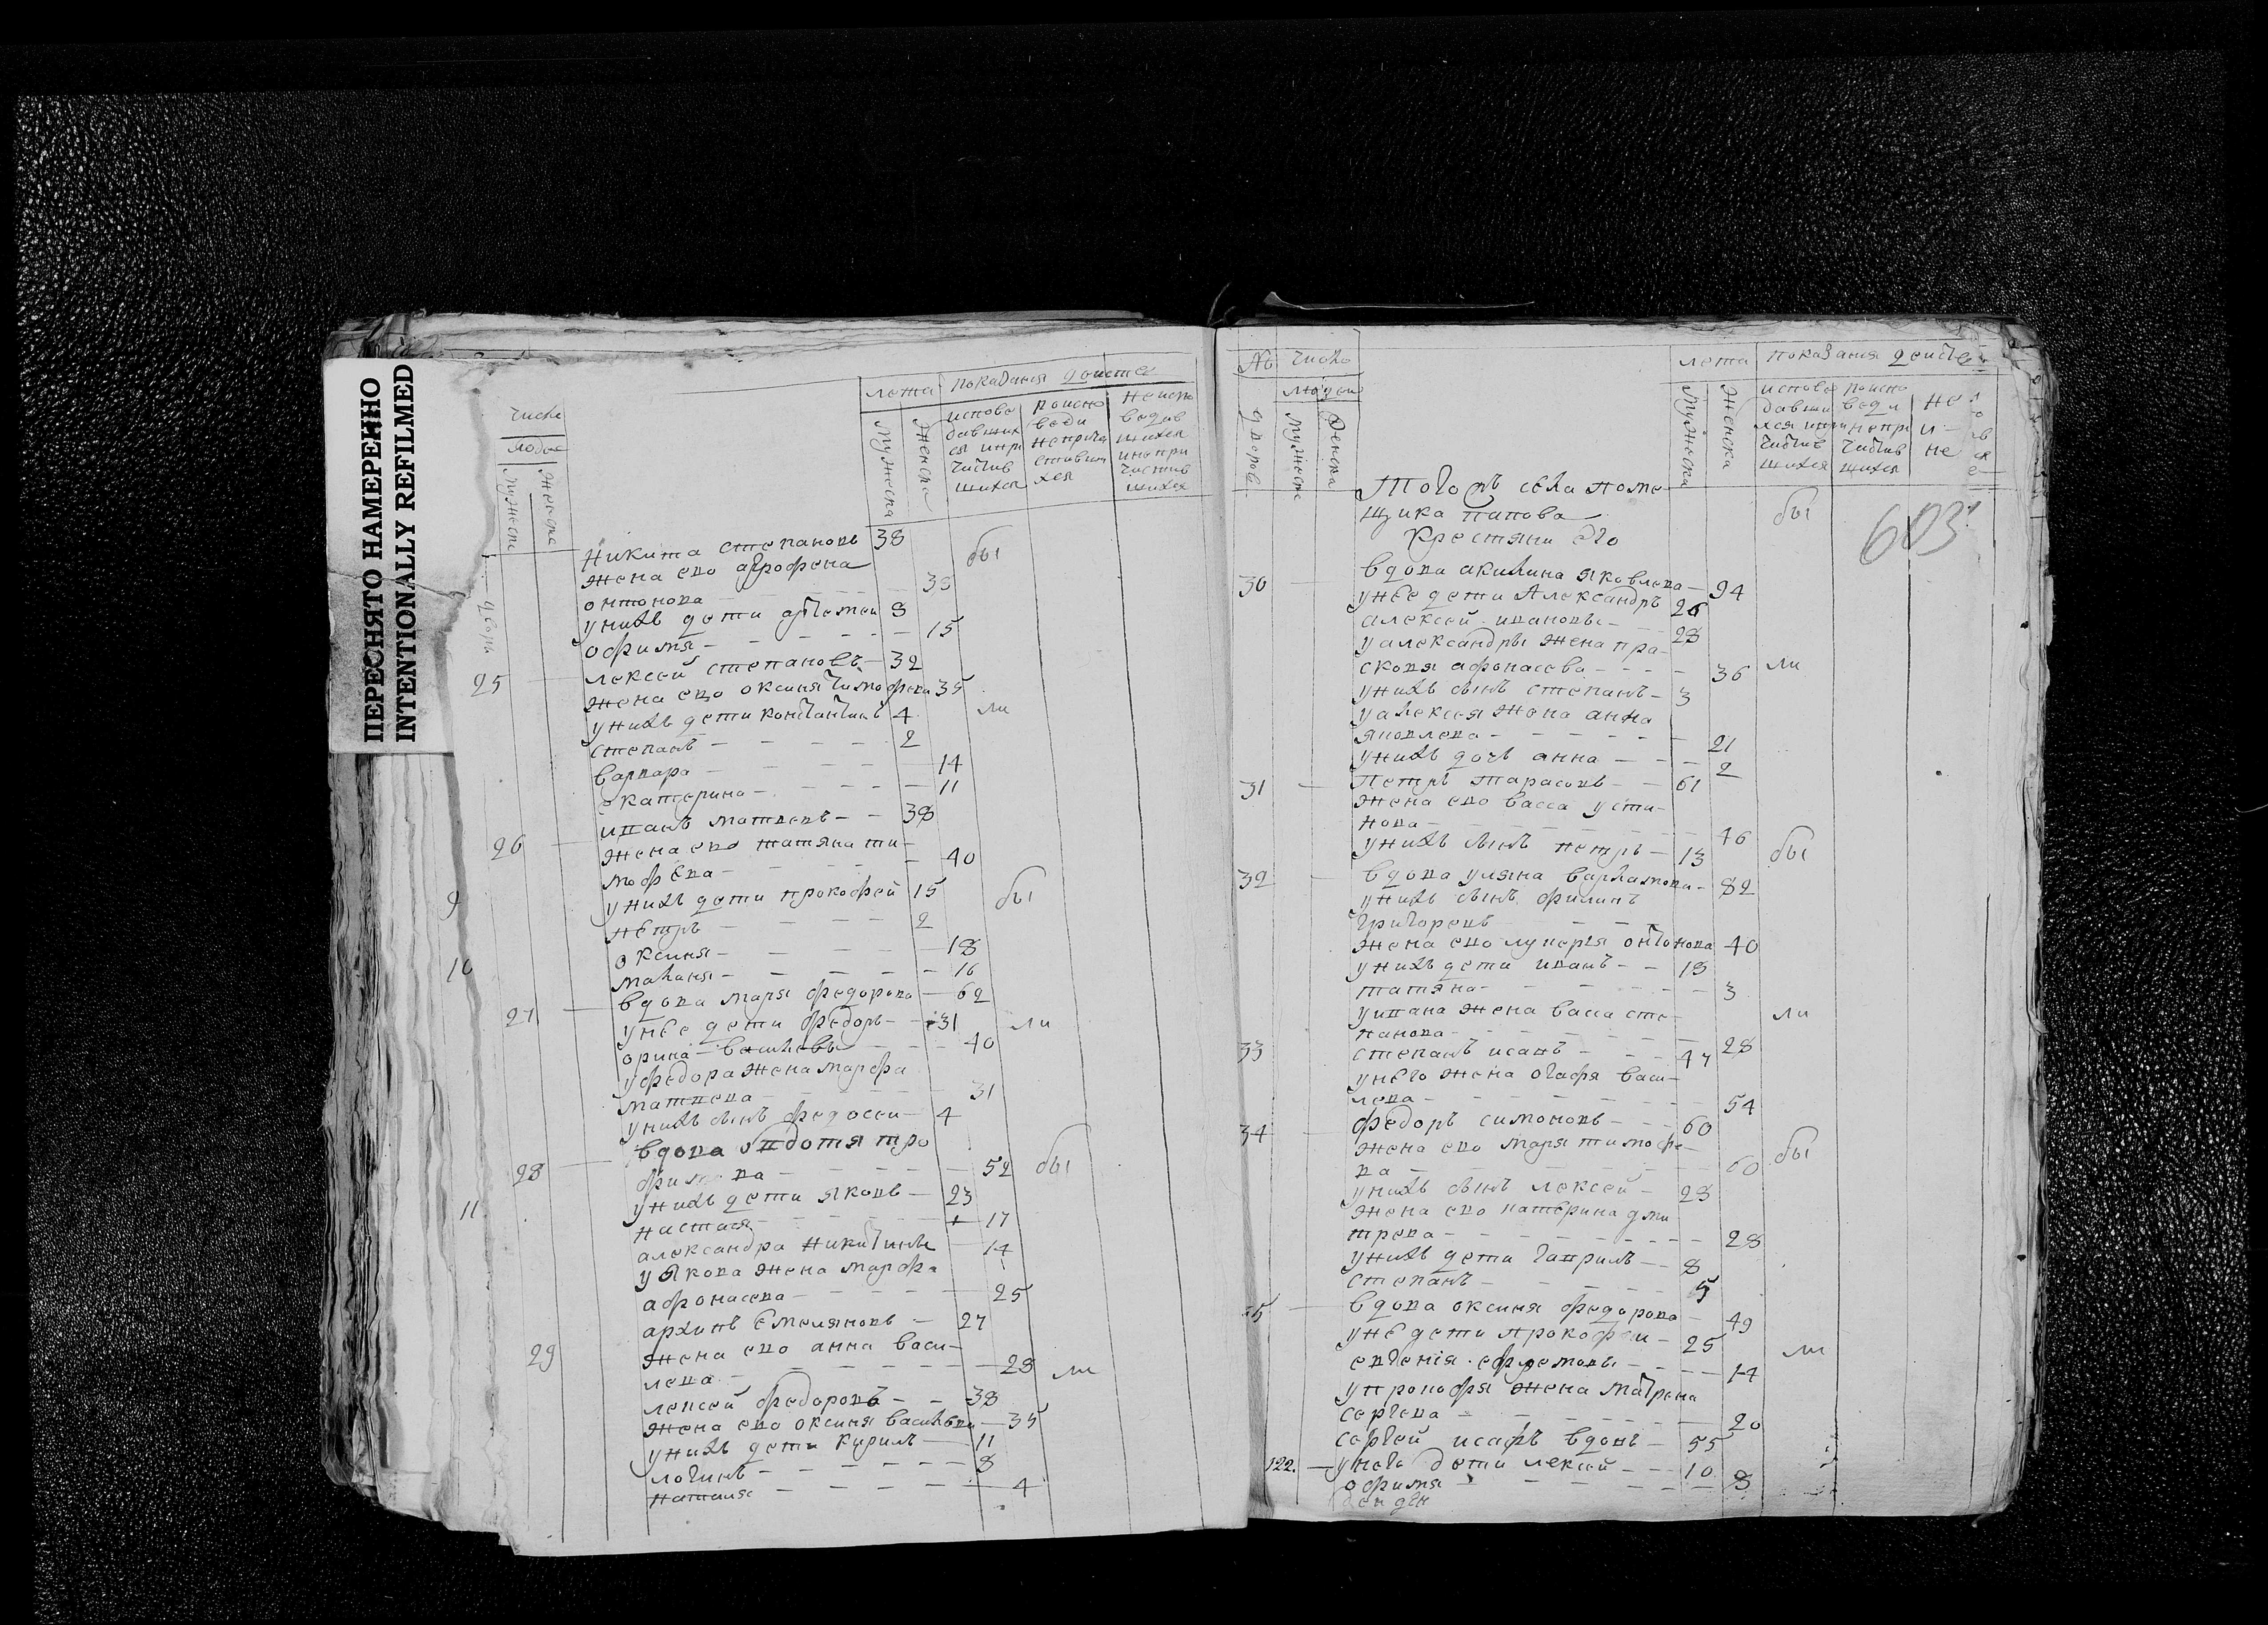 ПЕРЕСНЯТО НАМЕРЕННО
INTENTIONALLY REFILMED
числа
людей
мужеска
женска
лета
показания действ
мужеска
женска
испове
давших
ся и при
частив
шихся
по испо
веди
не прича
стивши
хся
не испо
ведав
шихся
и не при
частив
шихся
двори
никита степановъ 38
жена ево агрофена
онтонова 38
бы
у нихъ дети артемеи 8
офимя 15
25 лексеи степановъ 32
жена ево оксиня тимофева 35
ли
у нихъ дети константинъ 4
степанъ 2
варвара 14
екатерина 11
26 иванъ матвевъ 38
жена ево татяна ти
мофева 40
9 у нихъ дети прокофеи 15
бы
петръ 2
оксиня 18
10 маланя 16
27 вдова маря федорова 62
у нее дети федоръ 31
ли
орина василевы 40
у федора жена марфа
матвева 31
у нихъ сынъ федосеи 4
28 вдова овдотя тро
фимова 52
бы
11 у нихъ дети яковъ 23
настася 17
александра никитины 14
у якова жена марфа
афонасева 25
29 архипъ емеляновъ 27
жена ево анна васи
лева 28
ли
лексеи федоровъ 38
жена ево оксиня василева 35
у нихъ дети кирилъ 11
логинъ 8
наталя 4
№
дворовъ
число
людеи
мужеска
женска
лета
мужеска
женска
показания действ
испове
давши
хся и при
частив
шихся
по испо
веди
не при
частив
шихся
не
и
не
603
Тогожъ села поме
щика попова
крестяни его
бы
30 вдова акилина яковлева 94
у нее дети александръ 26
алексеи ивановы 28
у александры жена пра
сковя афонасева 36
ли
у нихъ сынъ степанъ 3
у алексея жена анна
яковлева 21
у нихъ дочь анна 2
31 Петръ тарасовъ 61
жена ево васса усти
нова 46
у нихъ сынъ петръ 13
бы
32 вдова уляна варламова 82
у нихъ сынъ филипъ
григоревъ
жена ево лукеря онтонова 40
у нихъ дети иванъ 18
татяна 3
у ивана жена васа сте
панова 28
ли
33 степанъ исаевъ 47
у него жена огафя васи
лева 54
34 федоръ симоновъ 60
жена ево маря тимофе
ва 60
бы
у нихъ сынъ лексеи 28
жена ево катерина дми
трева 28
у нихъ дети гаврилъ 8
степанъ 5
35 вдова оксиня федорова 49
у не дети прокофеи 25
евгения ефремовы 14
ли
у прокофя жена матрена
сергева 20
сергеи исаевъ вдовъ 55
122. у него дети лексеи 10
офимя 8